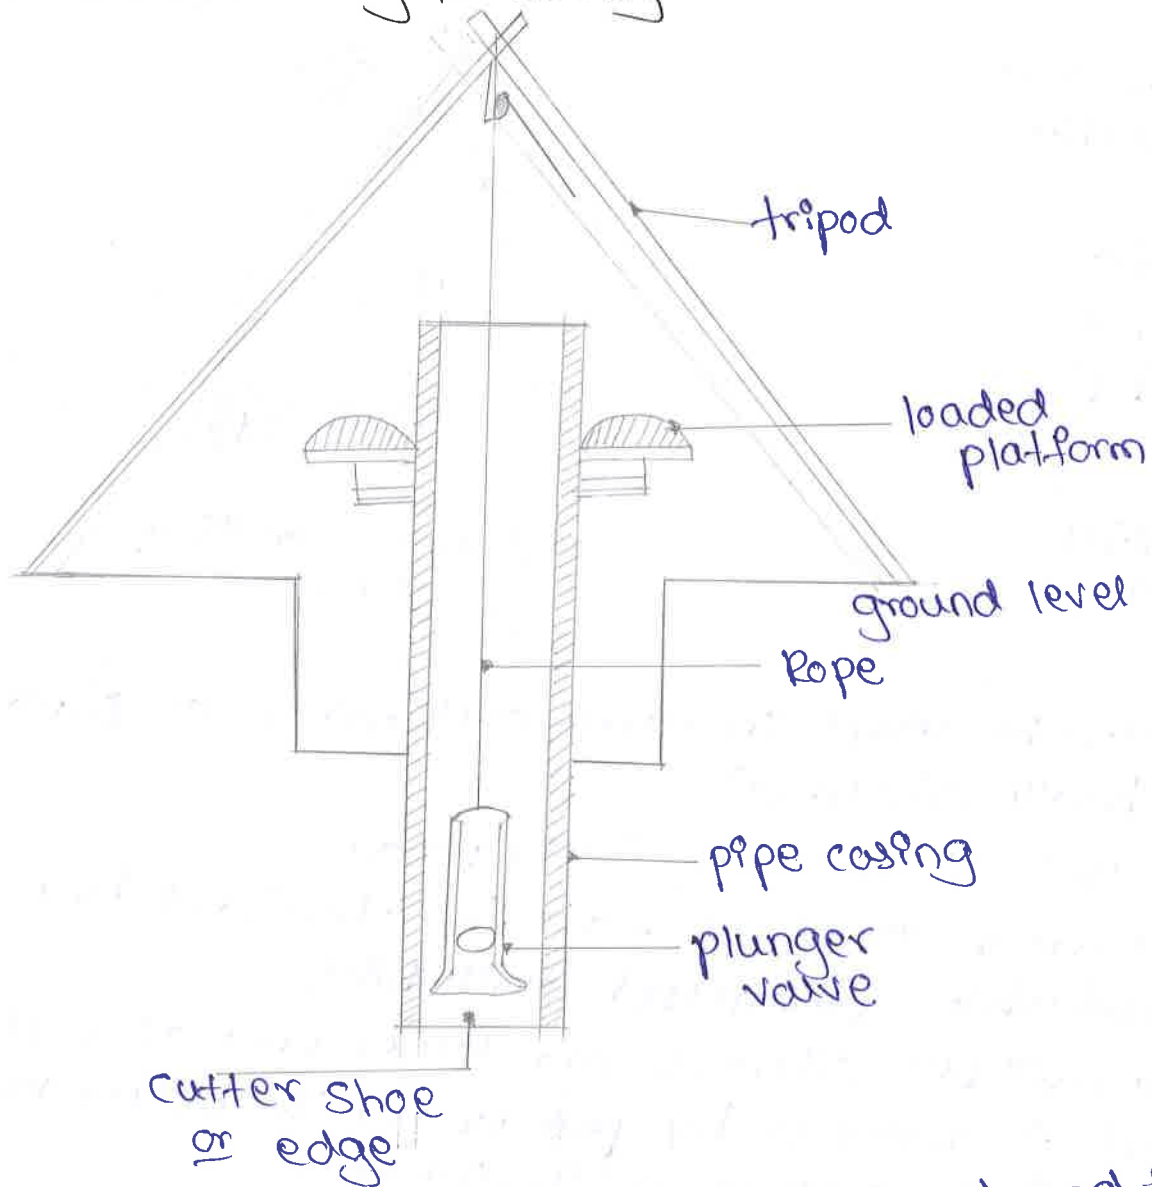 tripod
loaded
platform
ground level
Rope
pipe casing
plunger
valve
Cutter Shoe
or edge